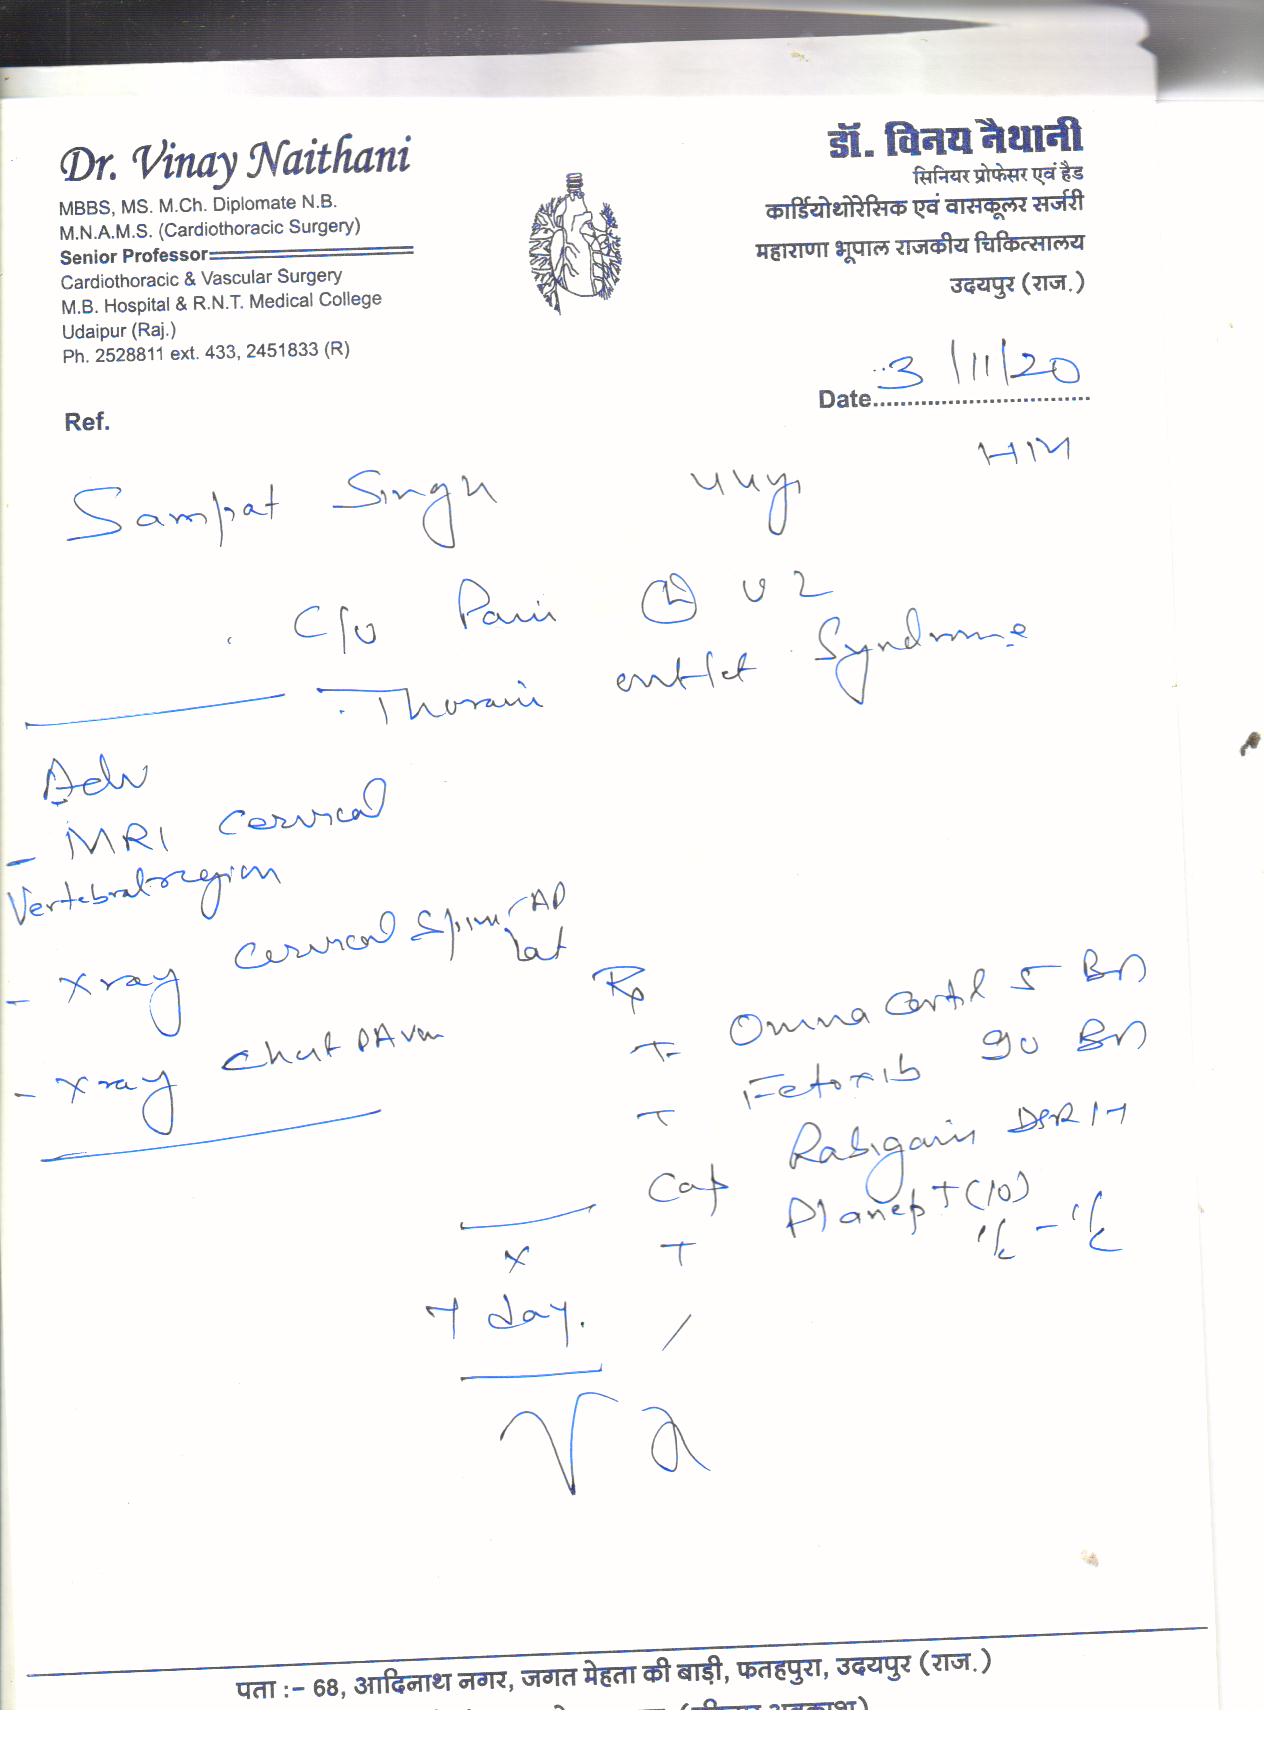 Dr. Vinay Naithani
MBBS, MS. M.Ch. Diplomate N.B.
M.N.A.M.S. (Cardiothoracic Surgery)
Senior Professor
Cardiothoracic & Vascular Surgery
M.B. Hospital & R.N.T. Medical College
Udaipur (Raj.)
Ph. 2528811 ext. 433, 2451833 (R)
डॉ. विनय नैथानी
सिनियर प्रोफेसर एवं हैड
कार्डियोथोरेसिक एवं वासकूलर सर्जरी
महाराणा भूपाल राजकीय चिकित्सालय
उदयपुर (राज.)
Date 3/11/20
Ref.
Sampat Singh 44y
C/o Pain (L)
Thoracic outlet Syndrome
Adv
- MRI Cervical
Vertebral region
- Xray Cervical Spine AP
lat
- Xray Chest PA View
Rp
T- Omnacortil 5 BD
T Fetoxib 90 BD
Cap Rabigain DSR
T Planep T (10)
1/2 - 1/2
x
7 day.
पता :- 68, आदिनाथ नगर, जगत मेहता की बाड़ी, फतहपुरा, उदयपुर (राज.)